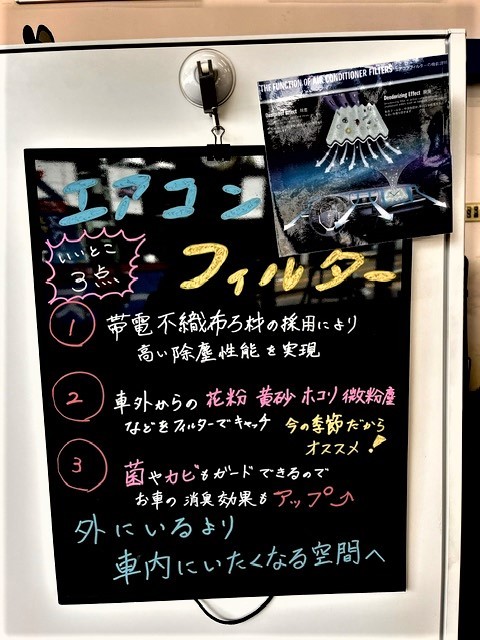 THE FUNCTION OF AIR CONDITIONER FILTERS
Deodorizing Effect
エアコン
フィルター
いいとこ
3点
1 帯電不織布ろ材の採用により
高い除塵性能を実現
2 車外からの 花粉 黄砂 ホコリ 微粉塵
などをフィルターでキャッチ
今の季節だから
オススメ!
3 菌やカビもガードできるので
お車の消臭効果もアップ↗
外にいるより
車内にいたくなる空間へ